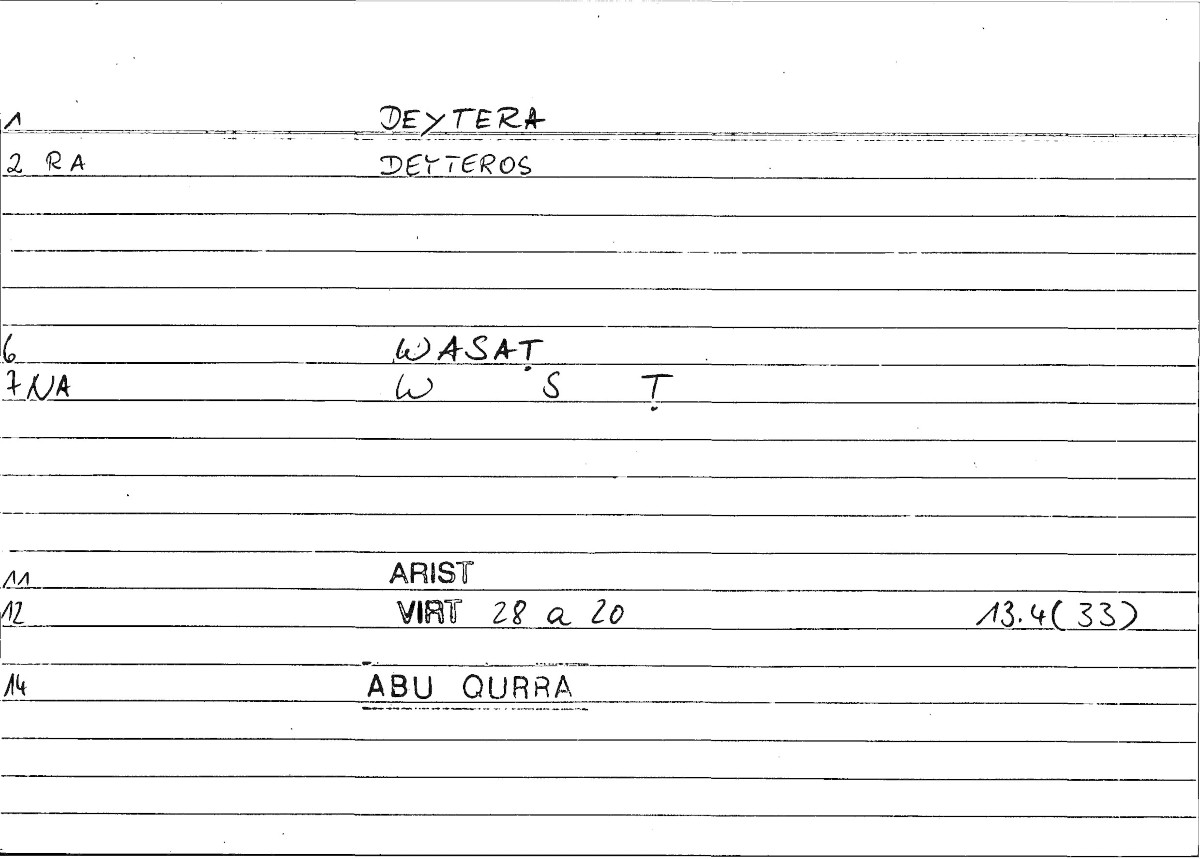 1 DEYTERA
2 RA DEYTEROS
6 WASAṬ
7 NA W S Ṭ
11 ARIST
12 VIRT 28 a 20 13.4(33)
14 ABU QURRA